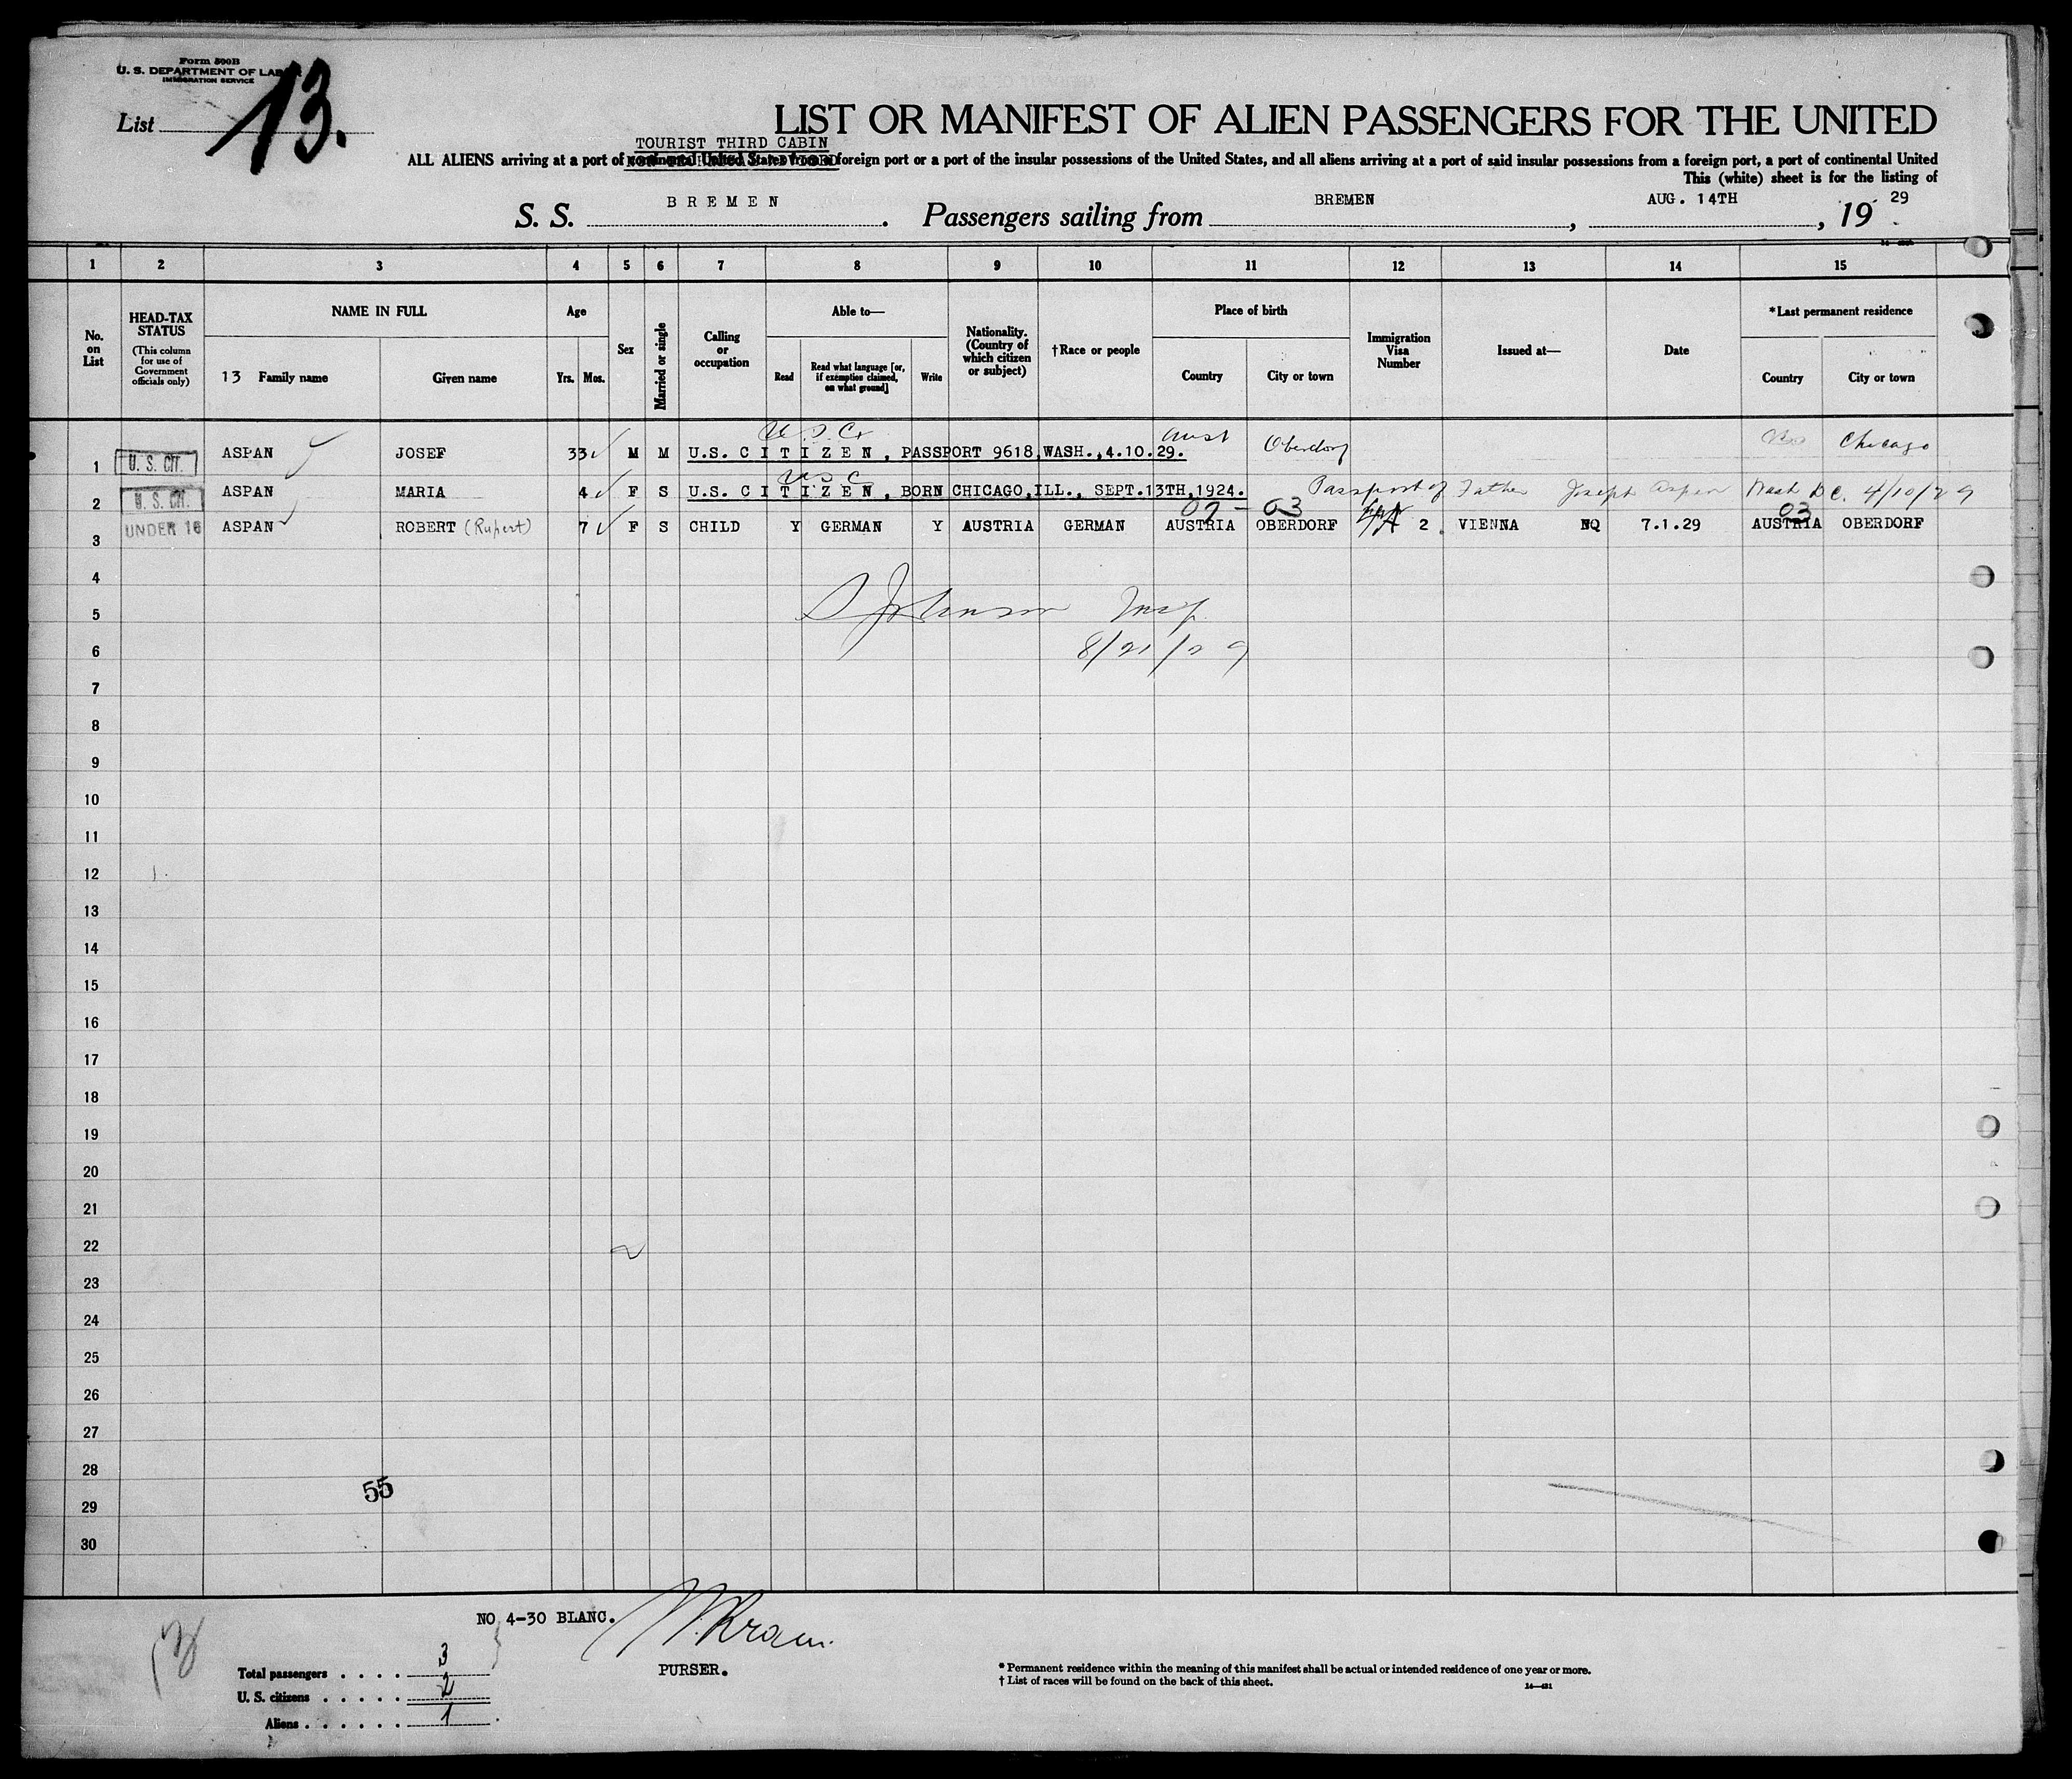 Form 500B
U. S. DEPARTMENT OF LAB
IMMIGRATION SERVICE
List 13.
LIST OR MANIFEST OF ALIEN PASSENGERS FOR THE UNITED
TOURIST THIRD CABIN
ALL ALIENS arriving at a port of continental United States from a foreign port or a port of the insular possessions of the United States, and all aliens arriving at a port of said insular possessions from a foreign port, a port of continental United
This (white) sheet is for the listing of
S. S. BREMEN. Passengers sailing from BREMEN, AUG. 14TH, 1929
1 2 3 4 5 6 7 8 9 10 11 12 13 14 15
No. on List
HEAD-TAX STATUS
(This column for use of Government officials only)
NAME IN FULL
13 Family name
Given name
Age
Yrs. Mos.
Sex
Married or single
Calling or occupation
Able to—
Read
Read what language [or, if exemption claimed, on what ground]
Write
Nationality. (Country of which citizen or subject)
†Race or people
Place of birth
Country
City or town
Immigration Visa Number
Issued at—
Date
*Last permanent residence
Country
City or town
U. S. C. Aust Oberdorf Chicago
1 U. S. CIT. ASPAN JOSEF 33 M M U.S. CITIZEN, PASSPORT 9618, WASH., 4.10.29.
U S C
2 U. S. CIT. ASPAN MARIA 4 F S U.S. CITIZEN, BORN CHICAGO, ILL., SEPT.13TH, 1924. Passport of Father Joseph Aspan Wash D C. 4/10/29
03 03
3 UNDER 16 ASPAN ROBERT (Rupert) 7 F S CHILD Y GERMAN Y AUSTRIA GERMAN AUSTRIA OBERDORF 2 VIENNA NQ 7.1.29 AUSTRIA OBERDORF
4
5 S Johnson Insp.
6 8/21/29
7
8
9
10
11
12
13
14
15
16
17
18
19
20
21
22
23
24
25
26
27
28
55
29
30
NO 4-30 BLANC.
PURSER.
Total passengers . . . . 3
U. S. citizens . . . . . 2
Aliens . . . . . . 1
* Permanent residence within the meaning of this manifest shall be actual or intended residence of one year or more.
† List of races will be found on the back of this sheet.
14—481